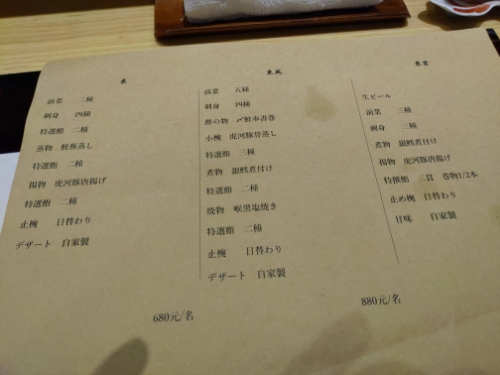 東
前菜 三種
刺身 四種
特選鮨 二種
蒸物 鮭蕪蒸し
特選鮨 二種
揚物 虎河豚唐揚げ
特選鮨 二種
止椀 日替わり
デザート 自家製
680元/名
東風
前菜 五種
刺身 四種
酢の物 〆鮭奉書巻
小椀 虎河豚骨蒸し
特選鮨 三種
煮物 銀鱈煮付け
特選鮨 二種
焼物 喉黒塩焼き
特選鮨 二種
止椀 日替わり
デザート 自家製
880元/名
生ビール
前菜 二種
刺身 三種
煮物 銀鱈煮付け
揚物 虎河豚唐揚げ
特撰鮨 三貫 巻物1/2本
止め椀 日替わり
甘味 自家製